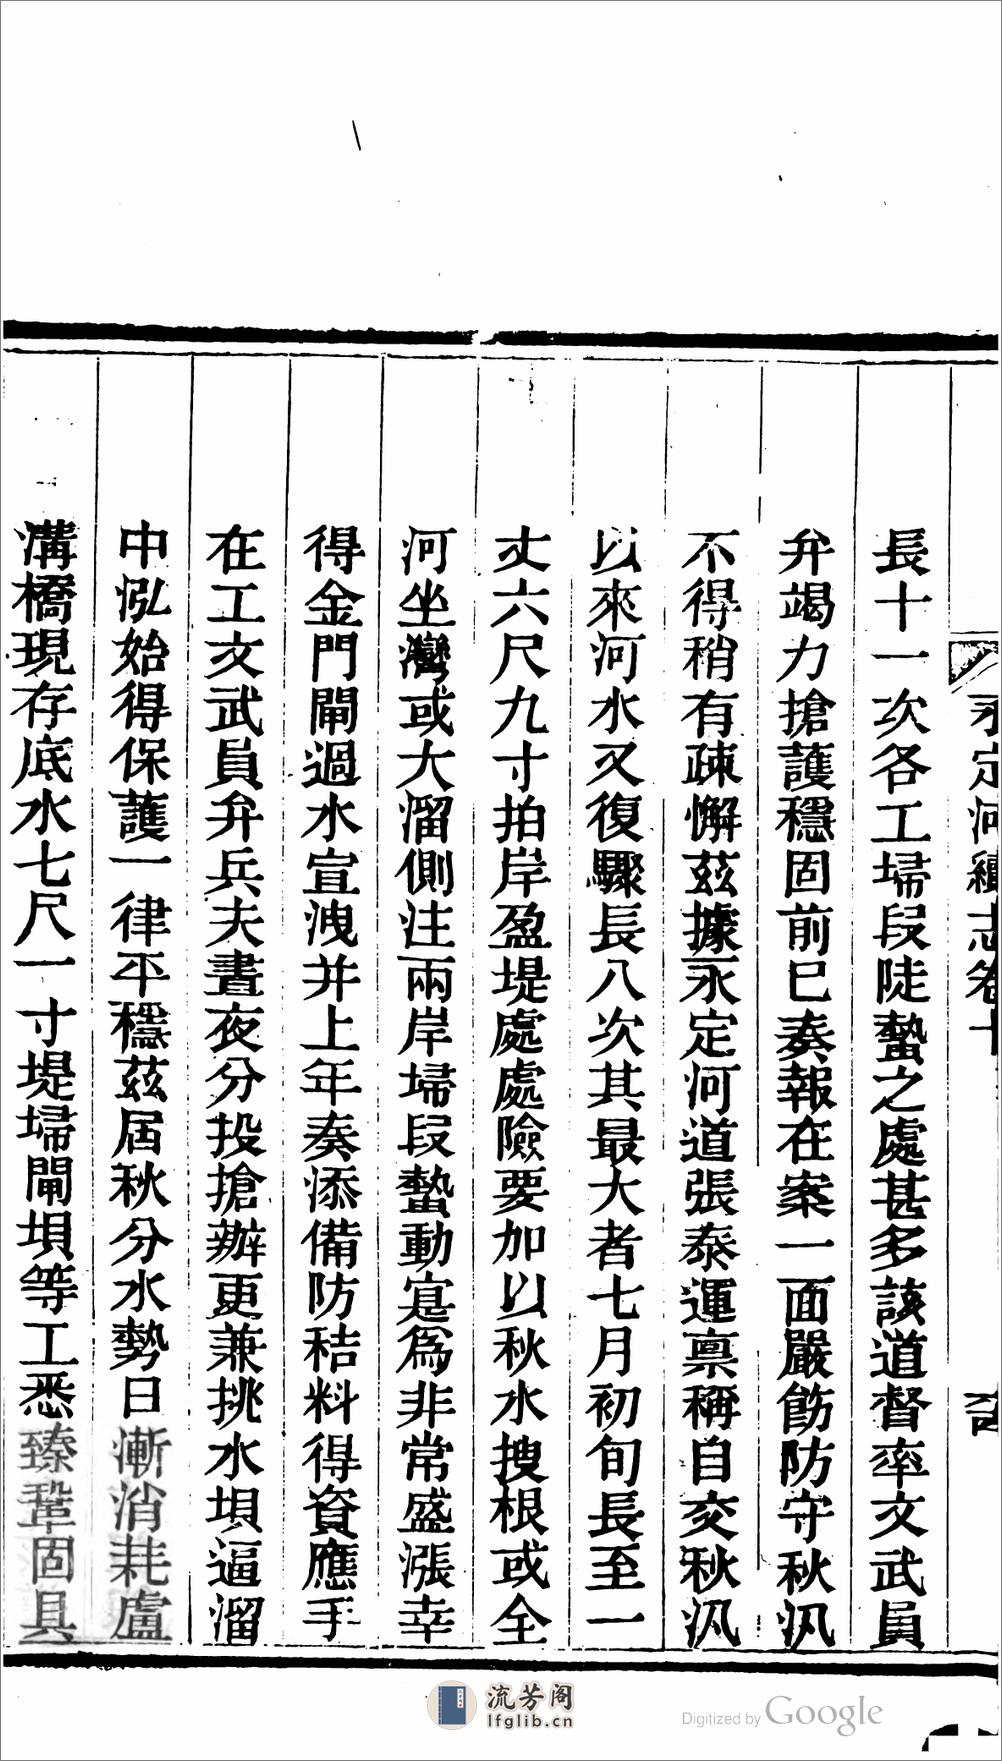 永定河續志卷十
長十一次各工埽段陡蟄之處甚多該道督率文武員
弁竭力搶護穩固前已奏報在案一面嚴飭防守秋汛
不得稍有疎懈茲據永定河道張泰運禀稱自交秋汛
以來河水又復驟長八次其最大者七月初旬長至一
丈六尺九寸拍岸盈堤處處險要加以秋水搜根或全
河坐灣或大溜側注兩岸埽段蟄動寔爲非常盛漲幸
得金門閘過水宣洩并上年奏添備防秸料得資應手
在工文武員弁兵夫晝夜分投搶辦更兼挑水埧逼溜
中泓始得保護一律平穩茲屆秋分水勢日漸消耗盧
溝橋現存底水七尺一寸堤埽閘埧等工悉臻鞏固具
流芳阁
lfglib.cn
Digitized by Google